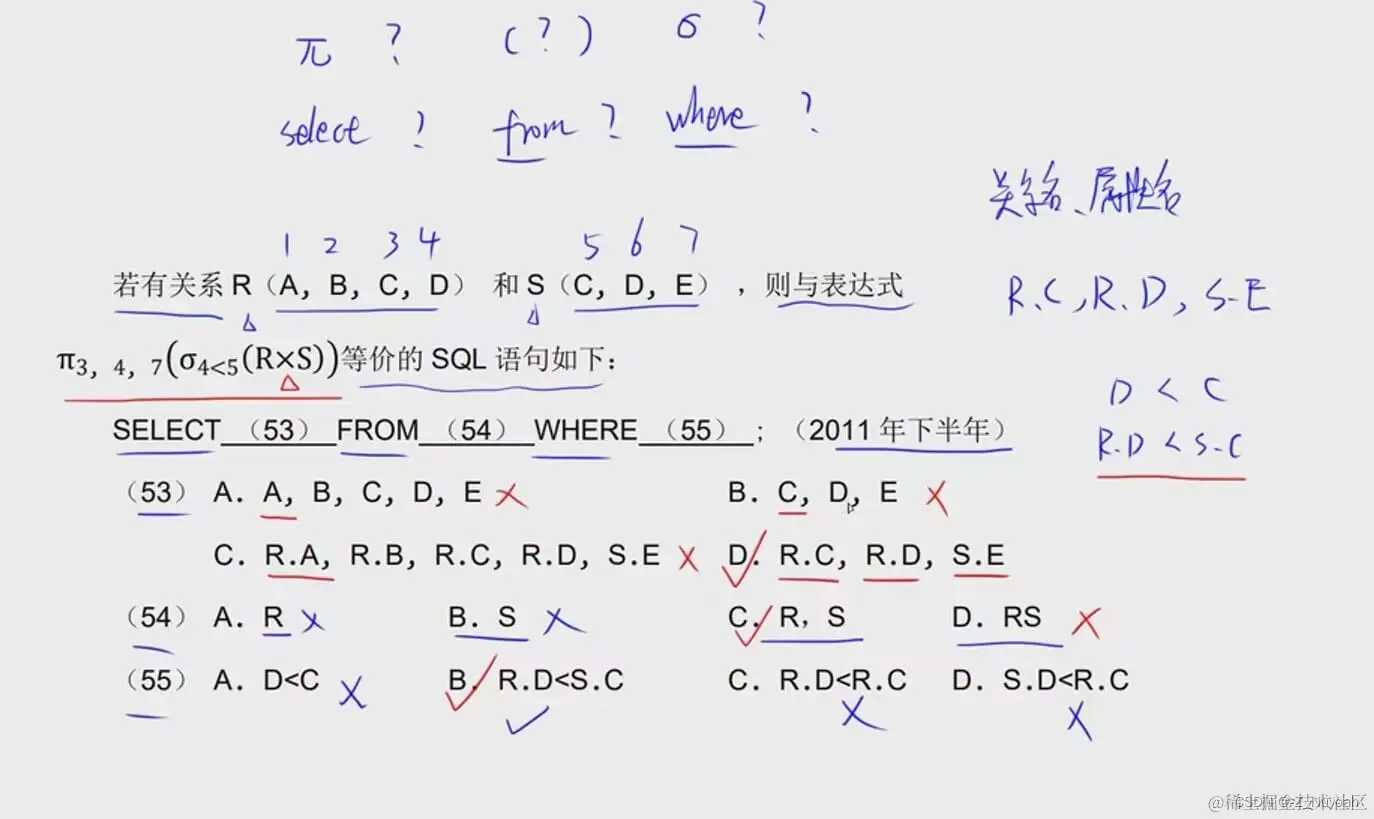 π ? (?) σ ?
select ? from ? where ?
关系名、属性名
1 2 3 4 5 6 7
若有关系 R（A，B，C，D） 和 S（C，D，E），则与表达式
R.C, R.D, S.E
π3，4，7(σ4<5(R×S))等价的 SQL 语句如下：
D < C
SELECT （53） FROM （54） WHERE （55）；（2011 年下半年）
R.D < S.C
（53） A. A, B, C, D, E B. C, D, E
C. R.A, R.B, R.C, R.D, S.E D. R.C, R.D, S.E
（54） A. R B. S C. R, S D. RS
（55） A. D<C B. R.D<S.C C. R.D<R.C D. S.D<R.C
@稀土掘金技术社区